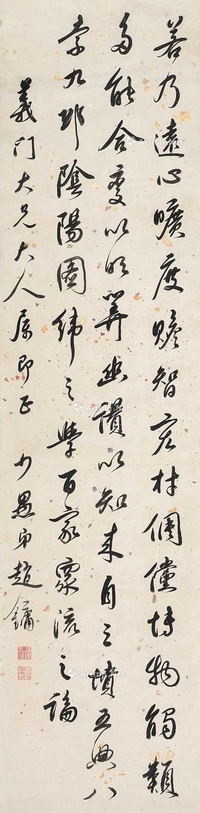 若乃遠心曠度贍智宏材倜儻博物觸類
多能合變以明筭幽讚以知來自三墳五典八
索九邱陰陽圖緯之學百家衆流之論
義門大兄大人屬即正 少愚弟趙鏞